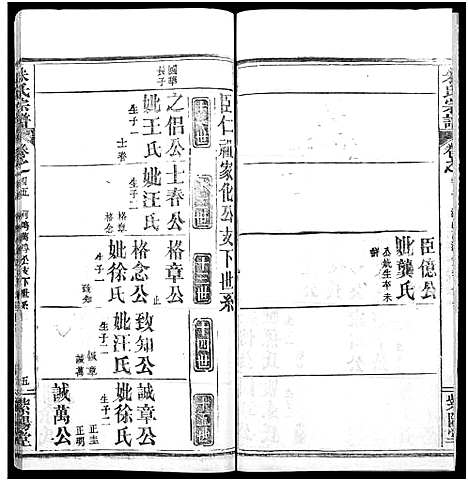 臣億公
妣龔氏
公妣生卒未
朱氏宗譜
紫陽堂
臣仁祖家化公支下世系
國華
長子
之侶公
妣王氏
生子一
士春
士春公
妣汪氏
生子二
格章
格念
格章公
止
格念公
妣徐氏
生子一
致知
致知公
妣汪氏
生子二
誠章
誠萬
誠章公
妣徐氏
生子二
正圭
正明
誠萬公
朱氏宗譜
五
紫陽堂